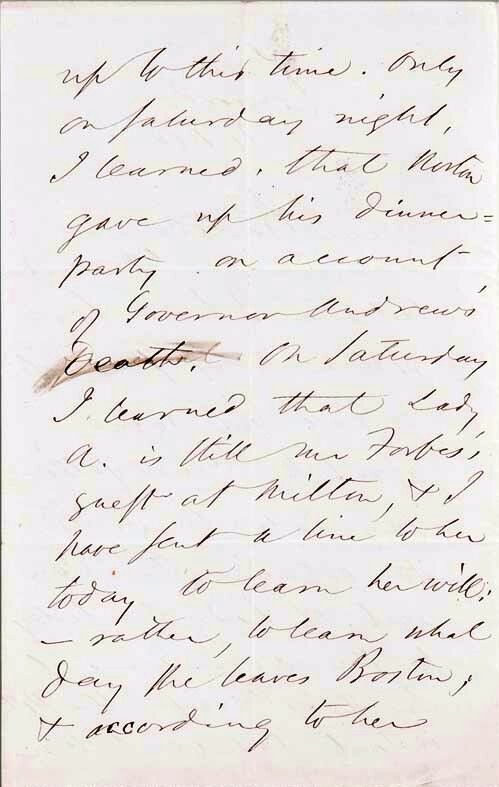 up to this time. Only
on Saturday night,
I learned, that Norton
gave up his dinner=
party on account
of Governor Andrew's
Death. On Saturday
I learned that Lady
A. is still Mr Forbes's
guest at Milton, & I
have sent a line to her
today to learn her will;
– rather, to learn what
day she leaves Boston;
& according to her